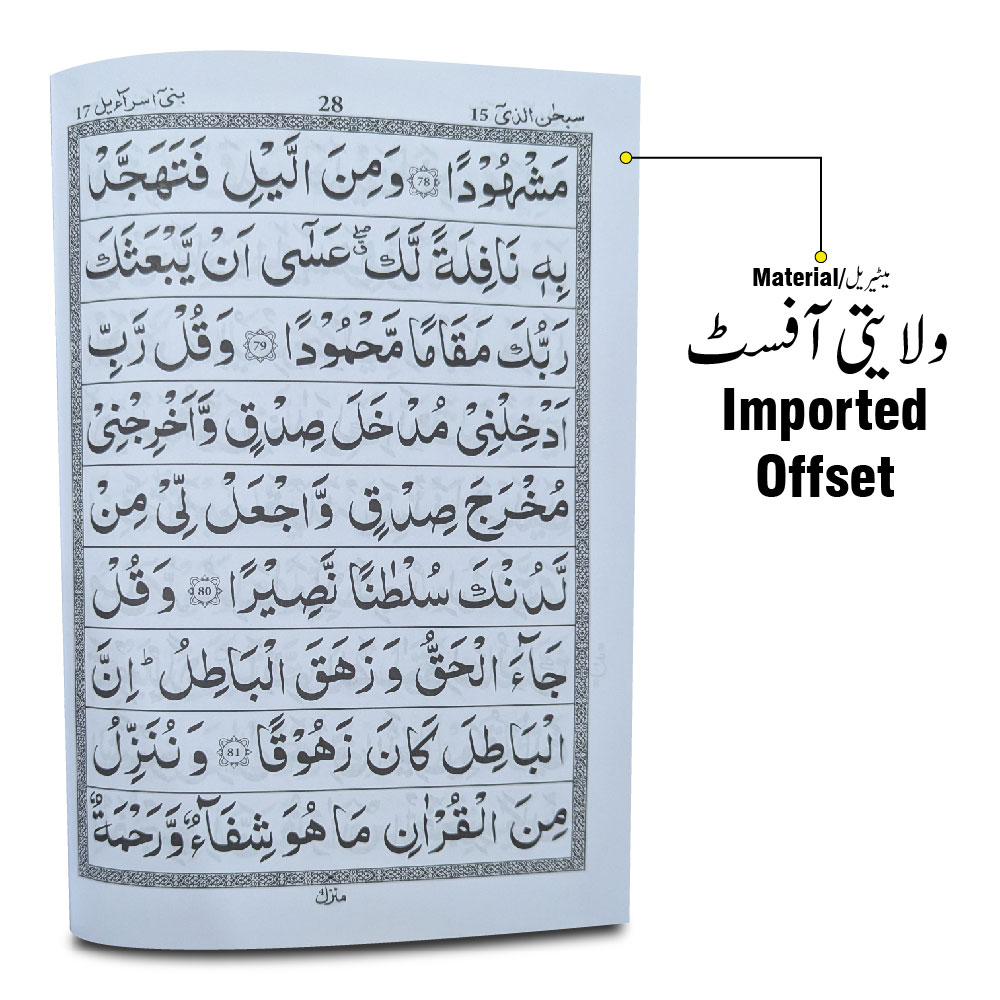 سبحٰن الذیٓ 15 28 بنیٓ اسرآءیل 17
مَشْهُوْدًا 78 وَمِنَ الَّيْلِ فَتَهَجَّدْ
بِهٖ نَافِلَةً لَّكَ ۖق عَسٰٓى اَنْ يَّبْعَثَكَ
رَبُّكَ مَقَامًا مَّحْمُوْدًا 79 وَقُلْ رَّبِّ
اَدْخِلْنِيْ مُدْخَلَ صِدْقٍ وَّاَخْرِجْنِيْ
مُخْرَجَ صِدْقٍ وَّاجْعَلْ لِّيْ مِنْ
لَّدُنْكَ سُلْطٰنًا نَّصِيْرًا 80 وَقُلْ
جَآءَ الْحَقُّ وَزَهَقَ الْبَاطِلُ ؕ اِنَّ
الْبَاطِلَ كَانَ زَهُوْقًا 81 وَنُنَزِّلُ
مِنَ الْقُرْاٰنِ مَا هُوَ شِفَآءٌ وَّرَحْمَةٌ
منزل ٤
Material/میٹیریل
ولایتی آفسٹ
Imported
Offset